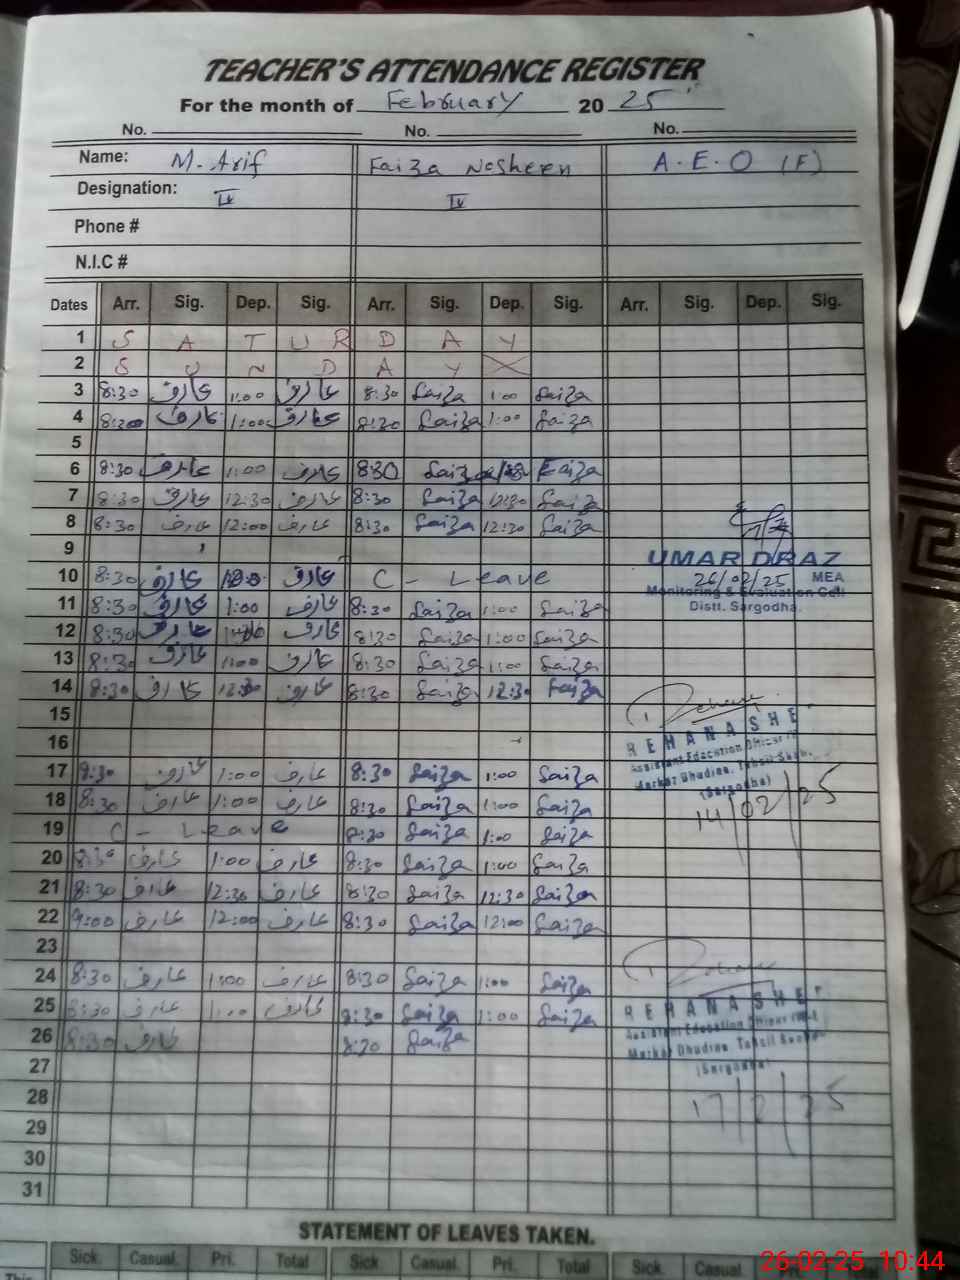 TEACHER'S ATTENDANCE REGISTER
For the month of February 20 25
No. No. No.
Name: M. Arif Faiza Nosheen A.E.O (F)
Designation: IV IV
Phone #
N.I.C #
Dates Arr. Sig. Dep. Sig. Arr. Sig. Dep. Sig. Arr. Sig. Dep. Sig.
1 S A T U R D A Y
2 S U N D A Y
3 8:30 عارف 1:00 عارف 8:30 Faiza 1:00 Faiza
4 عارف 1:00 عارف Faiza 1:00 Faiza
5
6 8:30 عارف 1:00 عارف 8:30 Faiza Faiza
7 8:30 عارف 12:30 عارف 8:30 Faiza 12:30 Faiza
8 8:30 عارف 12:00 عارف 8:30 Faiza 12:30 Faiza
9
UMAR DRAZ
10 8:30 عارف عارف C - Leave 26/02/25 MEA
Monitoring & Evaluation Cell
11 8:30 عارف 1:00 عارف 8:30 Faiza 1:00 Faiza Distt. Sargodha.
12 8:30 عارف عارف 8:30 Faiza 1:00 Faiza
13 8:30 عارف 1:00 عارف 8:30 Faiza 1:00 Faiza
14 8:30 عارف 12:30 عارف 8:30 Faiza 12:30 Faiza
15 REHANA SHE
16 Assistant Education Officer
Markaz Dhudina, Tehsil
17 8:30 عارف 1:00 عارف 8:30 Faiza 1:00 Faiza (Sargodha)
18 8:30 عارف 1:00 عارف 8:30 Faiza 1:00 Faiza 14/02/25
19 C - Leave 8:30 Faiza 1:00 Faiza
20 8:30 عارف 1:00 عارف 8:30 Faiza 1:00 Faiza
21 8:30 عارف 12:30 عارف 8:30 Faiza 12:30 Faiza
22 9:00 عارف 12:00 عارف 8:30 Faiza 12:00 Faiza
23
24 8:30 عارف 1:00 عارف 8:30 Faiza 1:00 Faiza
25 8:30 عارف 1:00 عارف 8:30 Faiza 1:00 Faiza REHANA SHE
Assistant Education Officer
26 8:30 عارف 8:30 Faiza Markaz Dhudina, Tehsil
27 (Sargodha)
28 17/2/25
29
30
31
STATEMENT OF LEAVES TAKEN.
Sick. Casual. Pri. Total Sick. Casual. Pri. Total Sick. Casual. Pri.
This
26-02-25 10:44